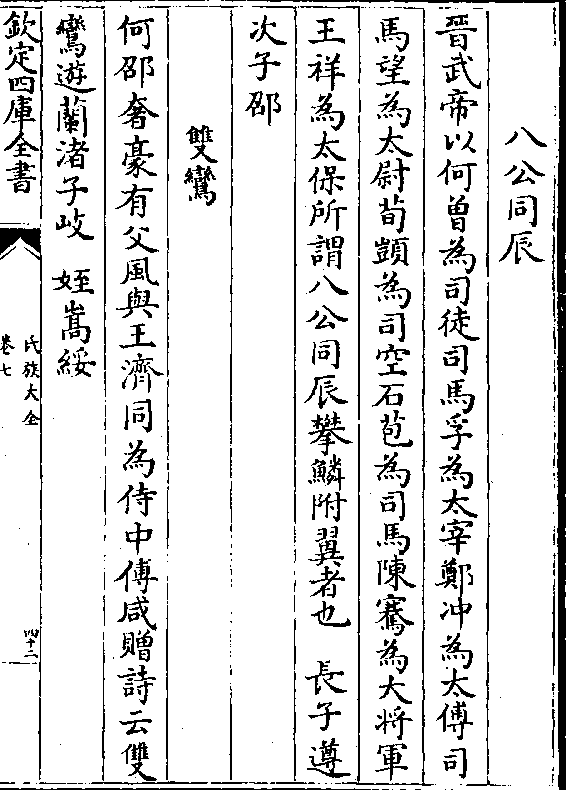 八公同辰
晉武帝以何曾為司徒司馬孚為太宰鄭冲為太傅司
馬望為太尉荀顗為司空石苞為司馬陳騫為大將軍
王祥為太保所謂八公同辰攀鱗附翼者也　長子遵
次子邵
雙鸞
何邵奢豪有父風與王濟同為侍中傅咸贈詩云雙
鸞遊蘭渚子岐　姪嵩綏
欽定四庫全書
氏族大全
卷七
四十二